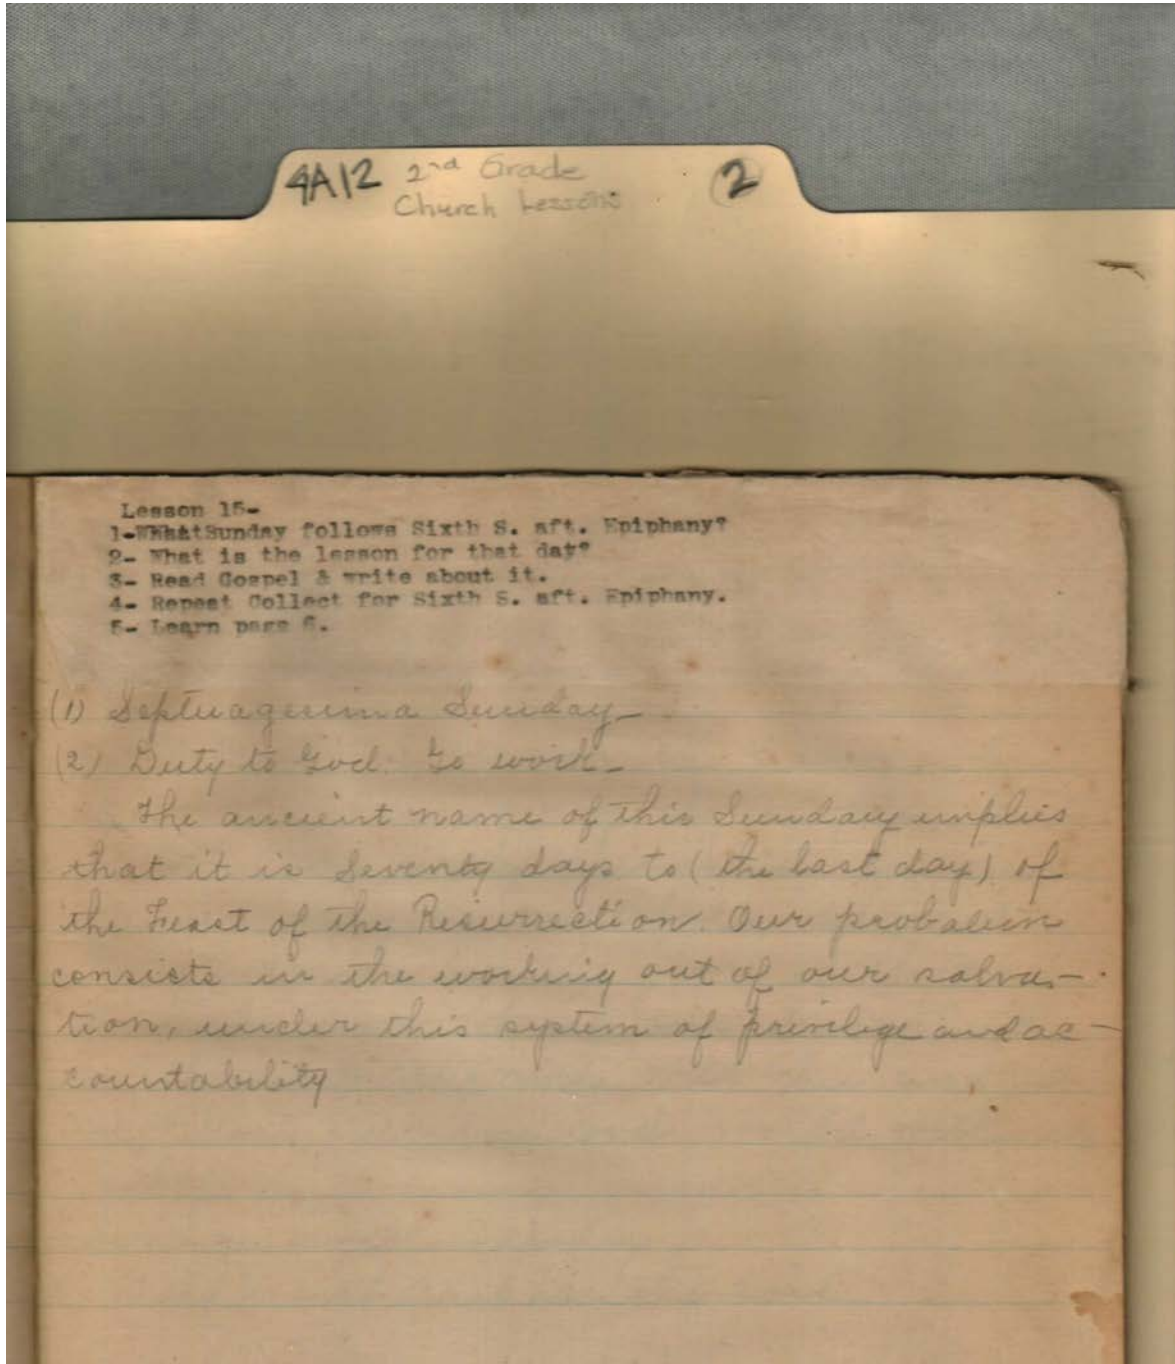 4A12 2nd Grade 2
Church Lessons
Lesson 15-
1-WhatSunday follows Sixth S. aft. Epiphany?
2- What is the lesson for that day?
3- Read Gospel & write about it.
4- Repeat Collect for Sixth S. aft. Epiphany.
5- Learn page 6.
(1) Septuagesima Sunday-
(2) Duty to God. Go work-
The ancient name of this Sunday implies
that it is Seventy days to (the last day) of
the Feast of the Resurrection. Our probation
consists in the working out of our salva-
tion, under this system of privilege and ac-
countability